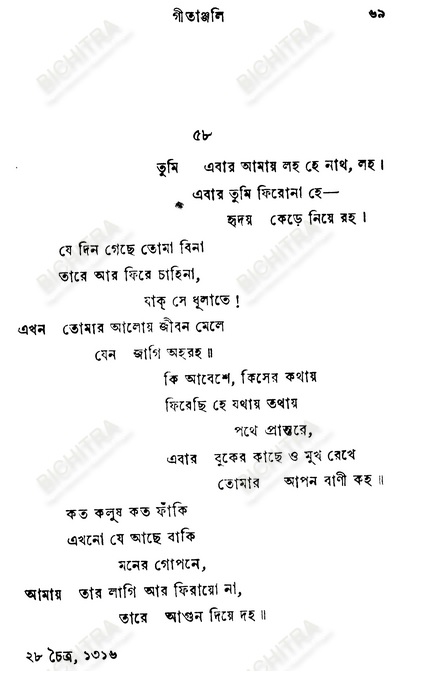 গীতাঞ্জলি ৬৯
৫৮
তুমি এবার আমায় লহ হে নাথ, লহ।
এবার তুমি ফিরোনা হে—
হৃদয় কেড়ে নিয়ে রহ।
যে দিন গেছে তোমা বিনা
তারে আর ফিরে চাহিনা,
যাক্ সে ধূলাতে!
এখন তোমার আলোয় জীবন মেলে
যেন জাগি অহরহ॥
কি আবেশে, কিসের কথায়
ফিরেছি হে যথায় তথায়
পথে প্রান্তরে,
এবার বুকের কাছে ও মুখ রেখে
তোমার আপন বাণী কহ॥
কত কলুষ কত ফাঁকি
এখনো যে আছে বাকি
মনের গোপনে,
আমায় তার লাগি আর ফিরায়ো না,
তারে আগুন দিয়ে দহ॥
২৮ চৈত্র, ১৩১৬
BICHITRA
BICHITRA
BICHITRA
BICHITRA
BICHITRA
BICHITRA
BICHITRA
BICHITRA